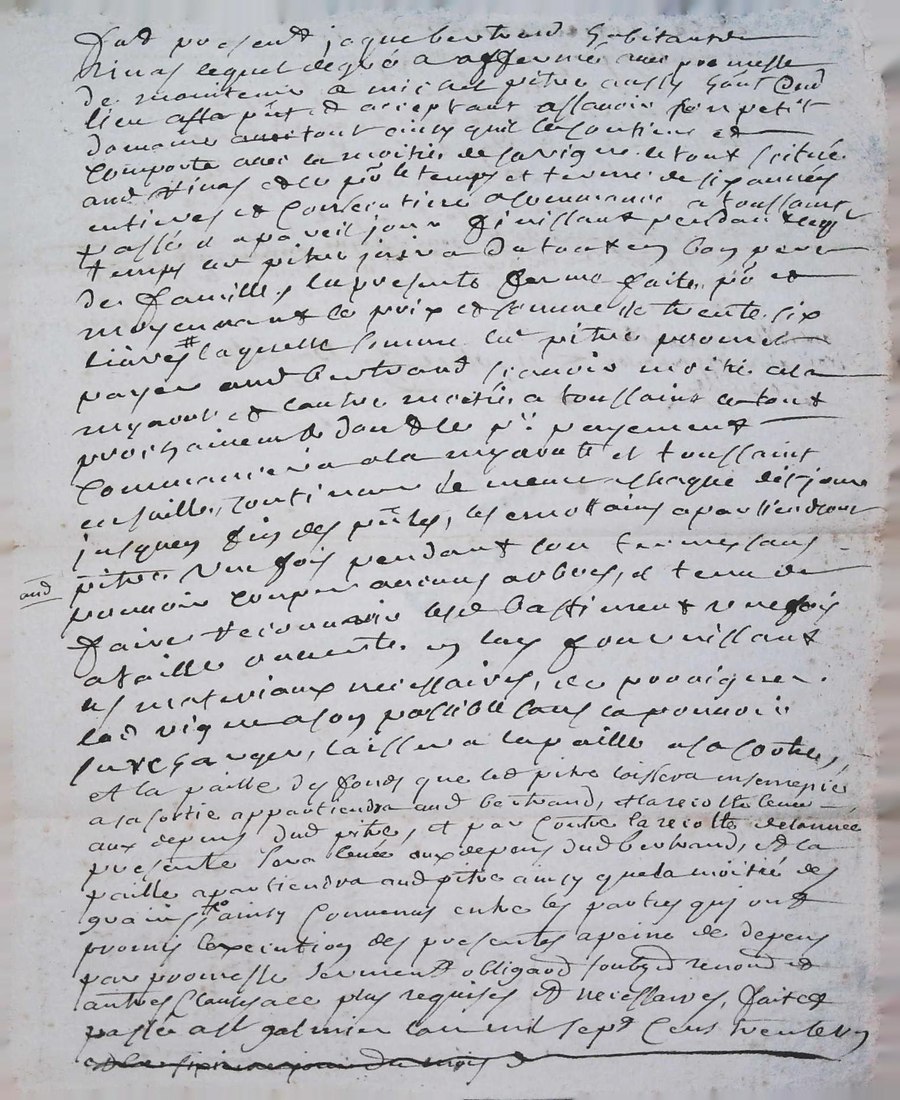 fut present jaque bertrand habitant de
Rivas lequel de gré a affermé avec promesse
de maintenir a michel pitre aussy habt dud
lieu assa pñt et acceptant assavoir son petit
domaine tout ainsy quil se contient et
comporte avec la moitié de sa vigne le tout scitué
aud Rivas et ce pr le temps et terme de six années
entieres et consecutives a commancé a toussaint
passé et a pareil jour finissant pendant lequel
temps led pitre jouira du tout en bon pere
de famille, la presente ferme faite pr et
moyennant le prix et somme de trente six
livres laquelle somme led pitre promet
payer aud bertrand scavoir moitié a la
myaout et lautre moitié a toussaint le tout
prochainement dont le pr payement
commancera a la myaout et toussaint
ensuitte, continuer de meme a chaque dits jours
jusques fin des pñtes, les emottains apartiendront
aud
pitre une fois pendant son terme sans
pouvoir couper aucuns arbres, et tenu de
faire recouvrir lesd bastiment une fois
a taille ouverte en luy fournissant
les materiaux necessaires, de provigner
lad vigne a son possible sans la pouvoir
surcharger, laissera la paille a sa sortie,
et la paille des fonds que led pitre laissera ensemencé
a sa sortie appartiendra aud bertrand, et la recolte levée
aux depens dud pitre, et par contre la recolte de lannée
presente sera levée aux depens dud bertrand, et la
paille apartiendra aud pitre ainsy que la moitié des
grains, ainsy convenus entre les parties qui ont
promis lexecution des presentes a peine de depens
par promesse serment obligaõ soubz renonõ et
autres clauses a ce plus requises et necessaires, fait et
passé a St galmier lan mil sept cens trente un